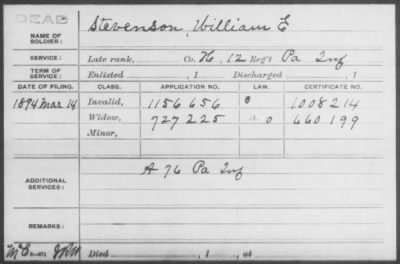 DEAD
NAME OF SOLDIER: Stevenson, William E
SERVICE: Late rank, Co. H, 12 Reg't Pa Inf
TERM OF SERVICE: Enlisted , 1 Discharged , 1
DATE OF FILING. CLASS. APPLICATION NO. LAW. CERTIFICATE NO.
1894 Mar 14 Invalid, 1156656 1008214
Widow, 727225 660199
Minor,
ADDITIONAL SERVICES: A 76 Pa Inf
REMARKS:
Died , 1 , at